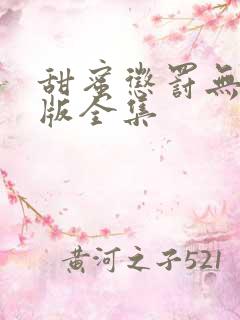 甜蜜懲罰無
版全集
黄河之子521